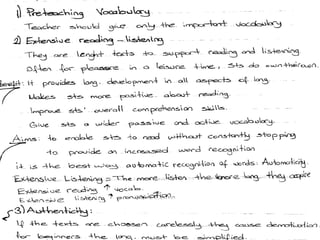 1) Preteaching Vocabulary
Teacher should give only the important vocabulary
2) Extensive reading - listening
They are lenght texts to support reading and listening
Often for pleasure in a leisure time. Sts do own their own.
Benefit: It provides lang. development in all aspects of lang.
Makes sts more positive about reading.
Improve sts' overall comprehension skills.
Give sts a wider passive and active vocabulary.
Aims: to enable sts to read without constantly stopping
to provide an increased word recognition
it is the best way automatic recognition of words: Automaticity.
Extensive Listening = The more listen the more lang. they acquire
Extensive reading ↑ vocab.
Extensive listening ↑ pronunciation.
3) Authenticity:
If the texts are choosen carelessly they cause demotivation.
for beginners the lang. must be simplified.